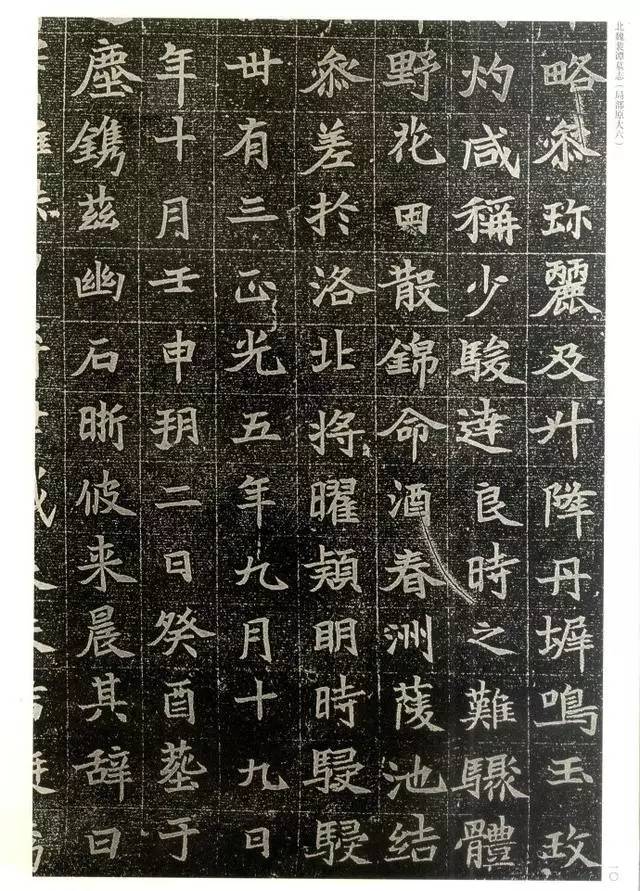 北魏裴谭墓志（局部原大六）
略叅珎麗及升降丹墀鳴玉玫
灼咸稱少駿達良時之難驟體
野花田散錦命酒春洲蔆池結
叅差扵洛北将曜穎明時駸駸
丗有三正光五年九月十九日
年十月壬申朔二日癸酉塟于
塵鐫兹幽石晣彼来晨其辞曰
一〇